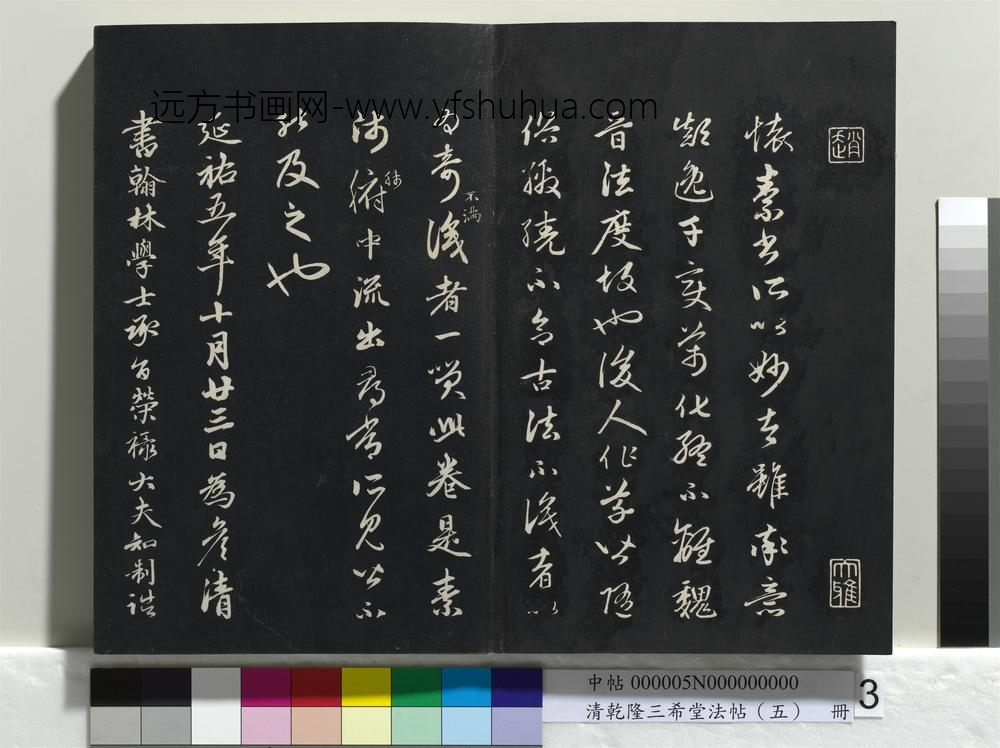 远方书画网-www.yfshuhua.com
趙
大雅
懷素書所以妙者雖率意
顛逸千變萬化終不離魏
晉法度故也後人作草皆隨
俗繳繞不合古法不識者以
為奇不滿識者一笑此卷是素
師肺腑中流出尋常所見皆不
能及之也
延祐五年十月廿三日為彥清
書翰林學士承旨榮祿大夫知制誥
中帖 000005N000000000
清乾隆三希堂法帖（五） 冊
3